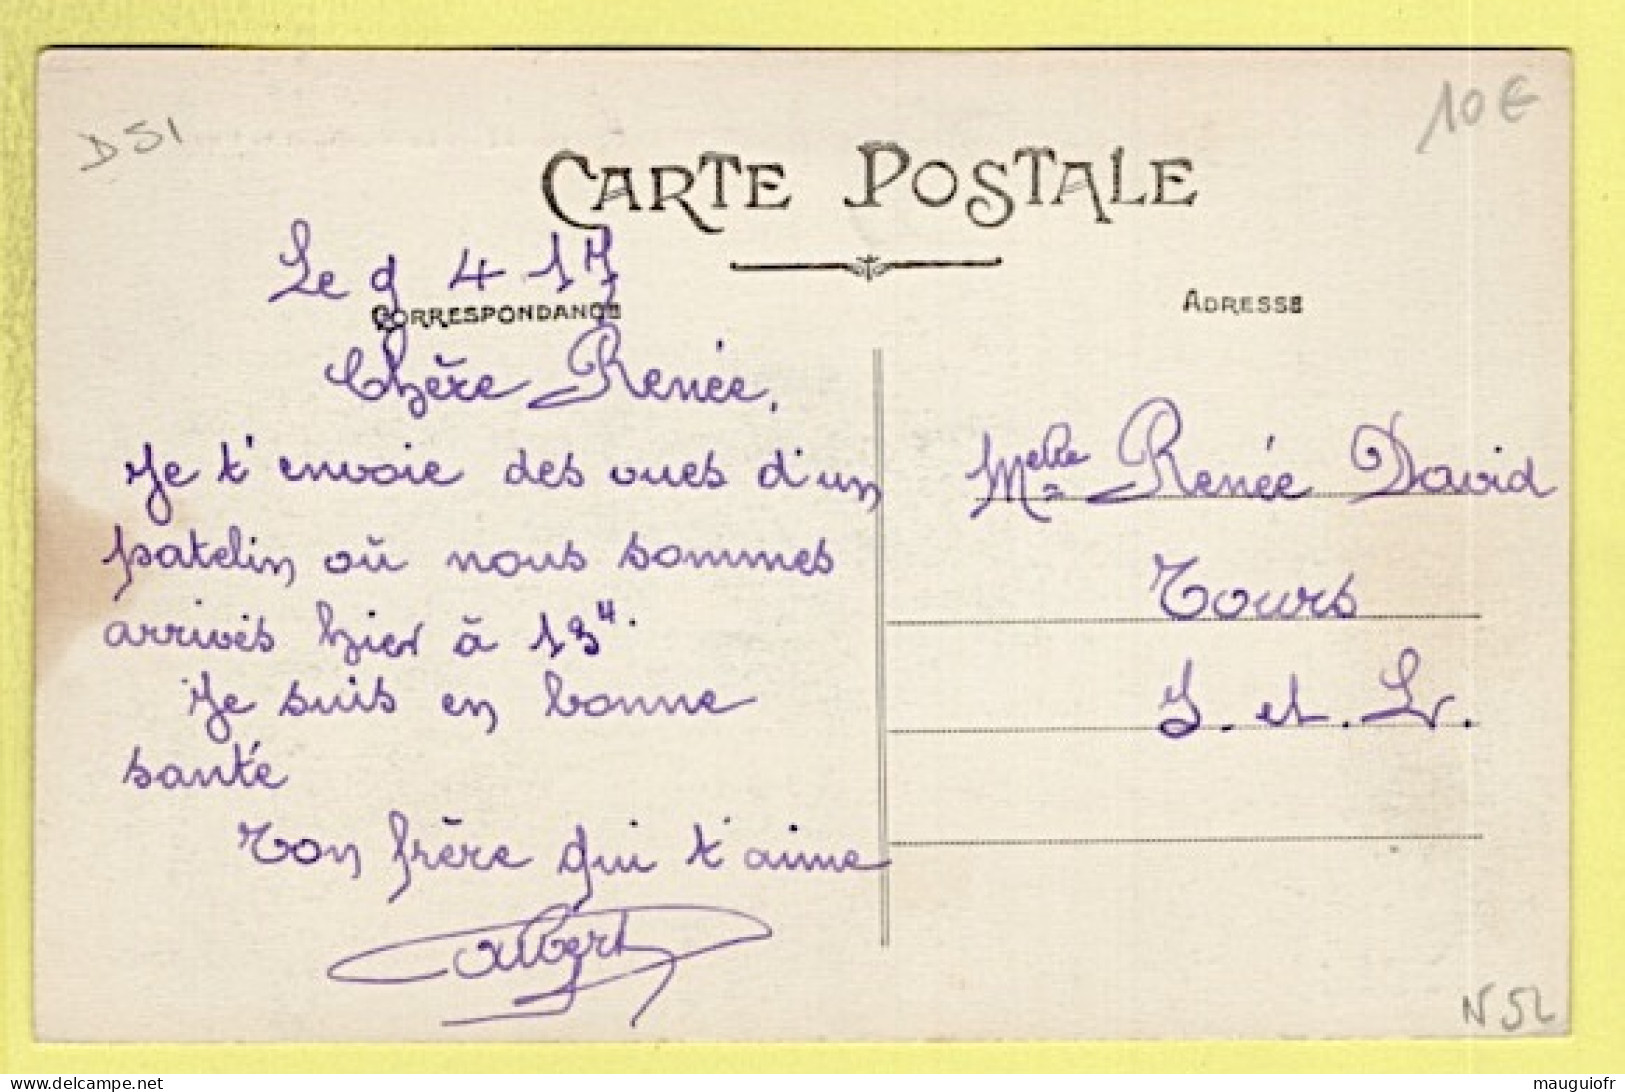 D 51
10 €
CARTE POSTALE
Le 9 4 17
CORRESPONDANCE
ADRESSE
Chère Renée,
Je t'envoie des vues d'un
patelin où nous sommes
arrivés hier à 13ʰ.
Je suis en bonne
santé
Ton frère qui t'aime
Albert
Melle Renée David
Tours
I. et L.
N 52
mauguiofr